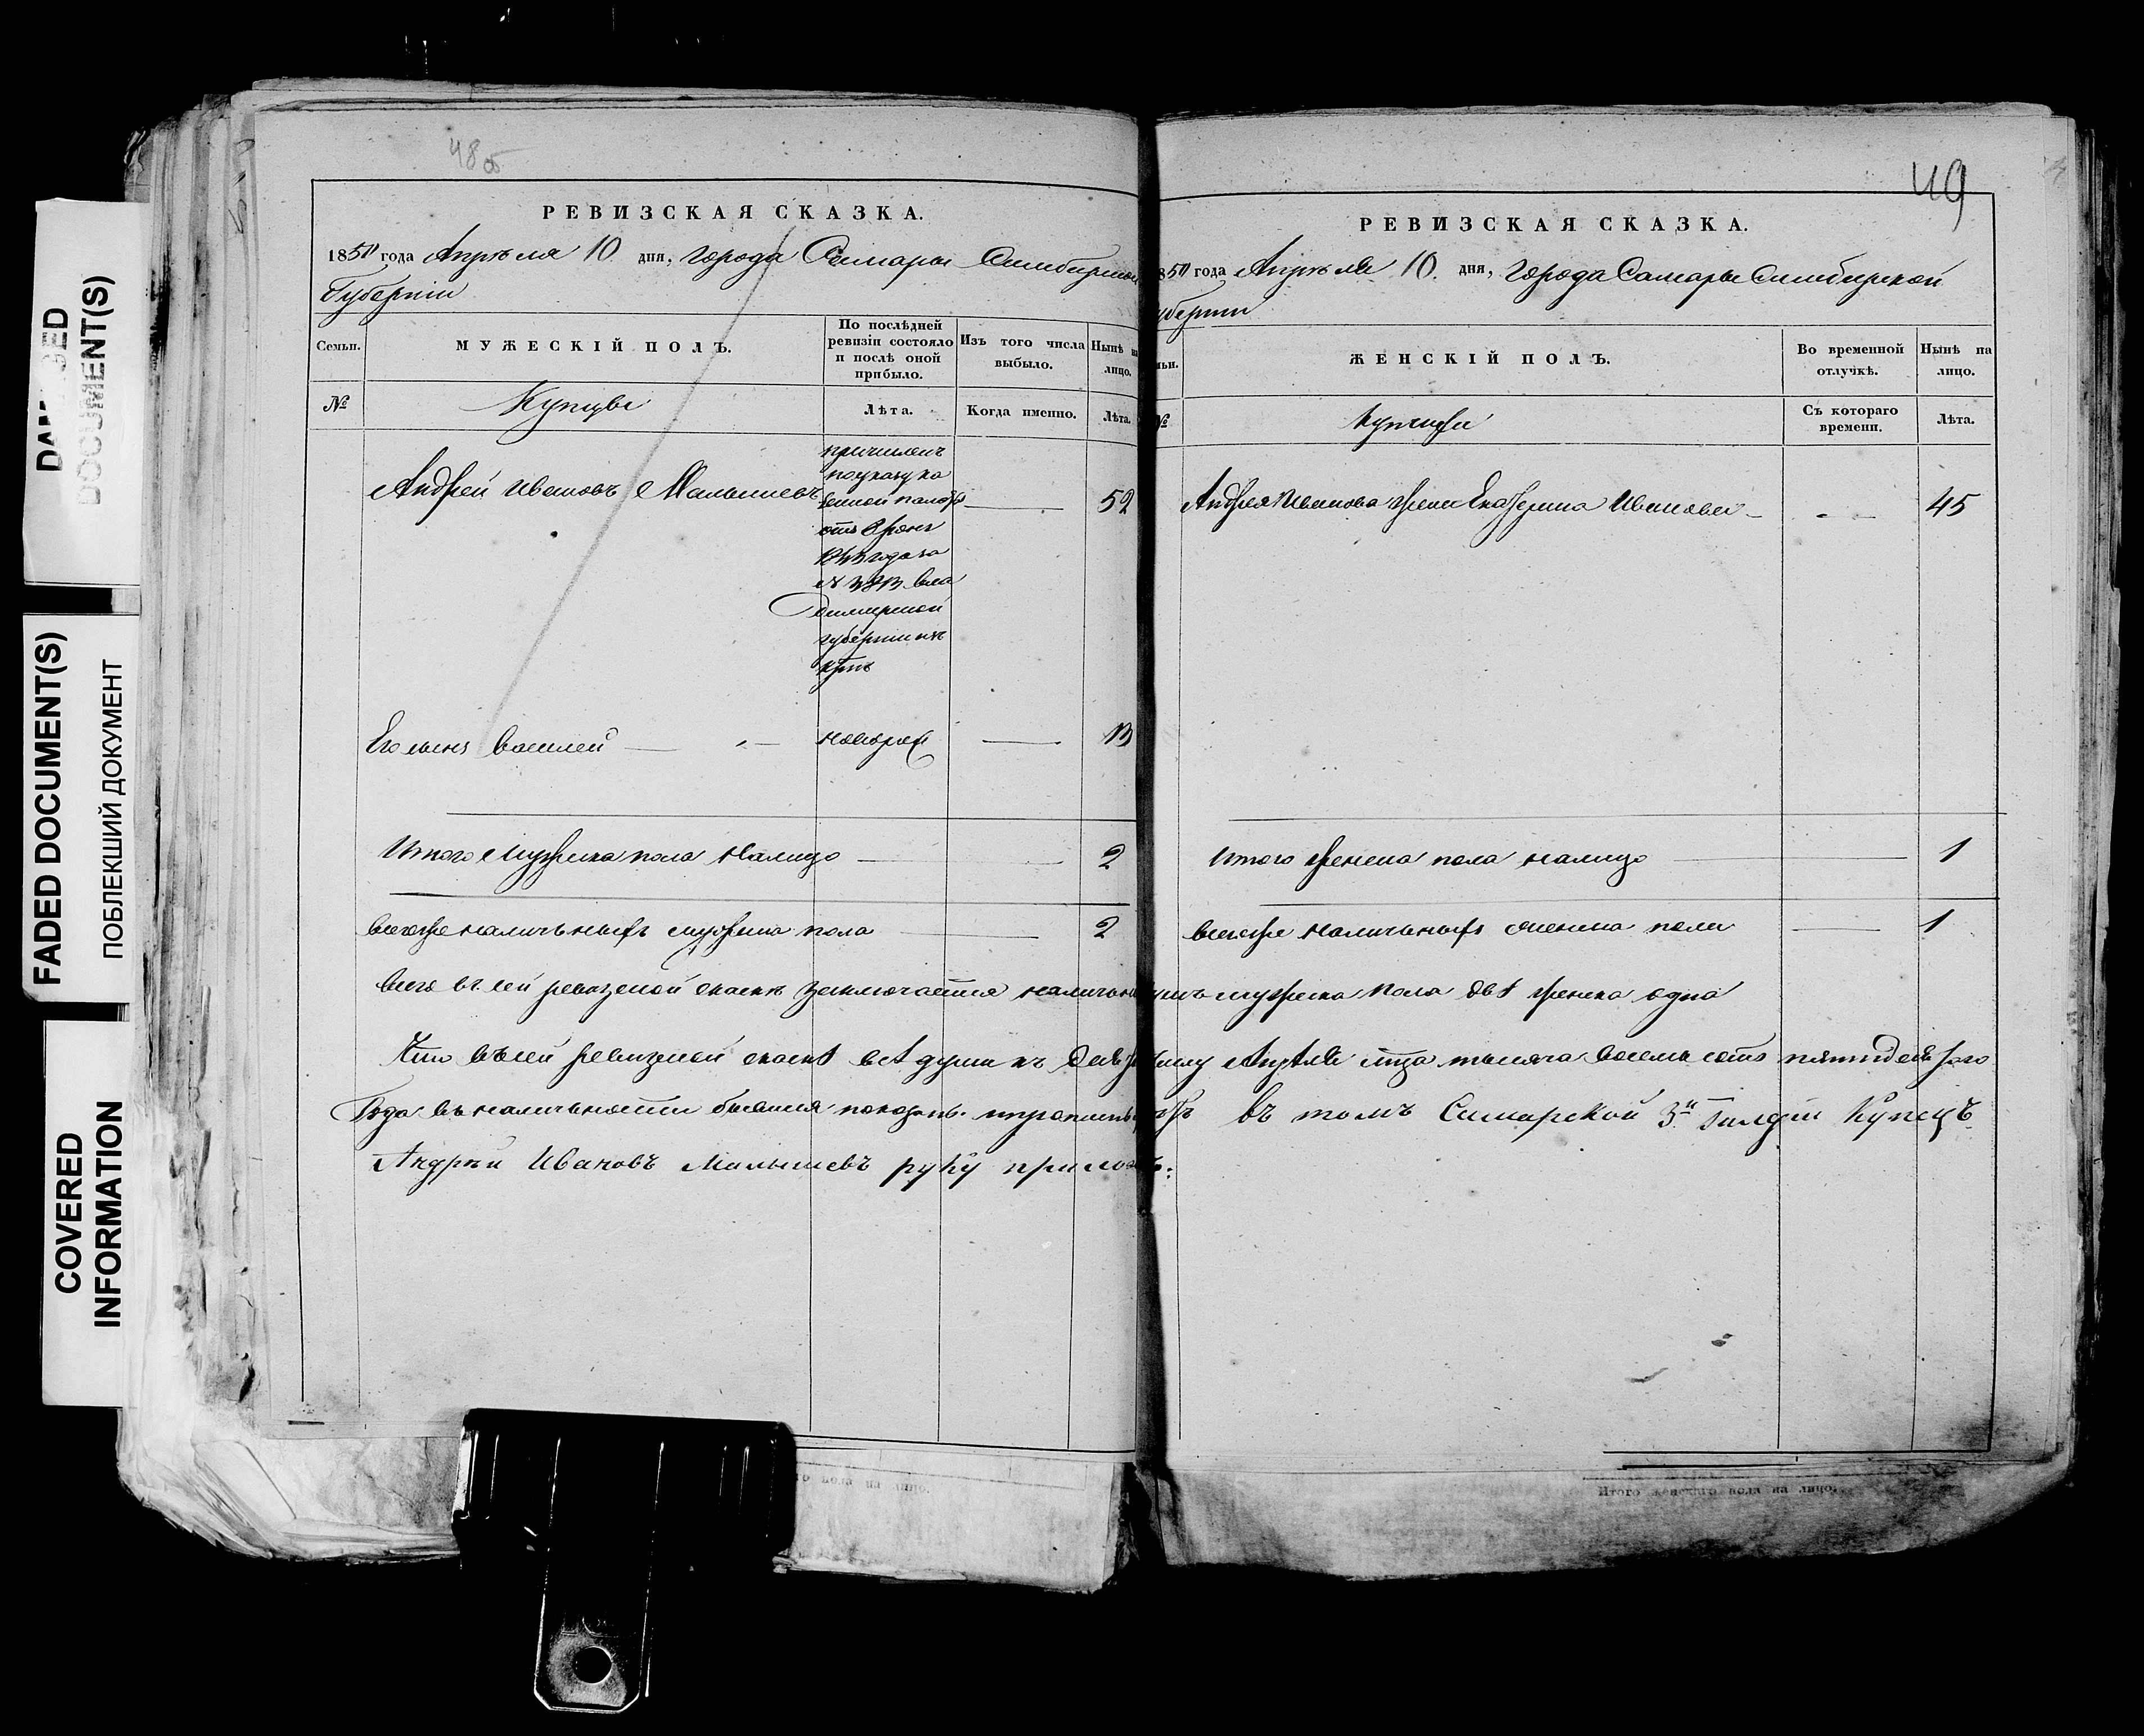 DAMAGED
DOCUMENT(S)
FADED DOCUMENT(S)
ПОБЛЕКШИЙ ДОКУМЕНТ
COVERED
INFORMATION
48 об
РЕВИЗСКАЯ СКАЗКА.
1850 года Апрѣля 10 дня, города Самары Симбирской
Губерніи
Семьи.
МУЖЕСКІЙ ПОЛЪ.
По послѣдней
ревизіи состояло
и послѣ оной
прибыло.
Изъ того числа
выбыло.
Нынѣ на
лицо.
№
Купцы
Лѣта.
Когда именно.
Лѣта.
Андрей Ивановъ Малышевъ
причисленъ
по указу ка
зенной палаты
отъ
года за
№ Вла
димирской
губерніи изъ
52
Его сынъ Василей
новорож
13
Итого мужеска пола налицо 2
всегоже наличныхъ мужеска пола 2
49
РЕВИЗСКАЯ СКАЗКА.
850 года Апрѣля 10 дня, города Самары Симбирской
уберніи
мьи.
ЖЕНСКІЙ ПОЛЪ.
Во временной
отлучкѣ.
Нынѣ на
лицо.
№
купчихи
Съ котораго
времени.
Лѣта.
Андрея Иванова жена Екатерина Иванова 45
Итого женска пола налицо 1
всегоже наличныхъ женска пола 1
всего въ сей ревизской сказкѣ заключается наличныхъ мужеска пола двѣ женска одна
Что въ сей ревизской сказкѣ всѣ души къ Апрѣля мца тысяча восемь сотъ пятидесятаго
Года въ наличности бывшія показаны въ томъ Самарской 3й Гилдіи Купецъ
Андрѣй Ивановъ Малышевъ руку прилож:
го пола на лицо.
Итого женскаго пола на лицо.